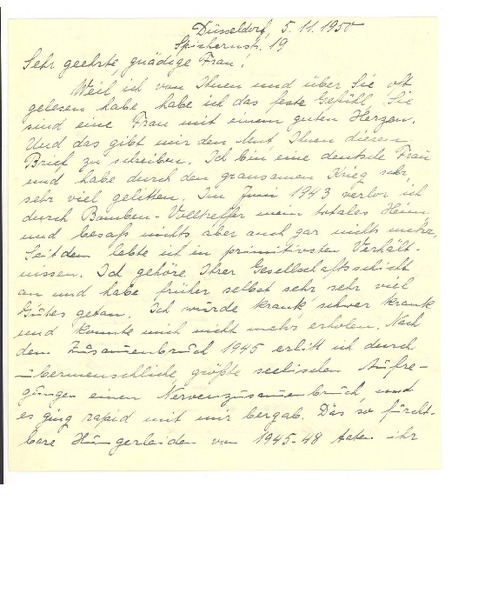 Düsseldorf, 5.11.1950
Spichernstr. 19
Sehr geehrte gnädige Frau!
Weil ich von Ihnen und über Sie oft
gelesen habe, habe ich das feste Gefühl, Sie
sind eine Frau mit einem guten Herzen.
Und das gibt mir den Mut Ihnen diesen
Brief zu schreiben. Ich bin eine deutsche Frau
und habe durch den grausamen Krieg sehr,
sehr viel gelitten. Im Juni 1943 verlor ich
durch Bomben-Volltreffer mein totales Heim,
und besaß nichts aber auch gar nichts mehr.
Seitdem lebte ich in primitivsten Verhält-
nissen. Ich gehöre Ihrer Gesellschaftsschicht
an und habe früher selbst sehr sehr viel
Gutes getan. Ich wurde krank, schwer krank
und konnte mich nicht mehr erholen. Nach
dem Zusammenbruch 1945 erlitt ich durch
übermenschliche, größte seelischen Aufre-
gungen einen Nervenzusammenbruch, und
es ging rapid mit mir bergab. Das so furcht-
bare Hungerleiden von 1945-48 taten ihr